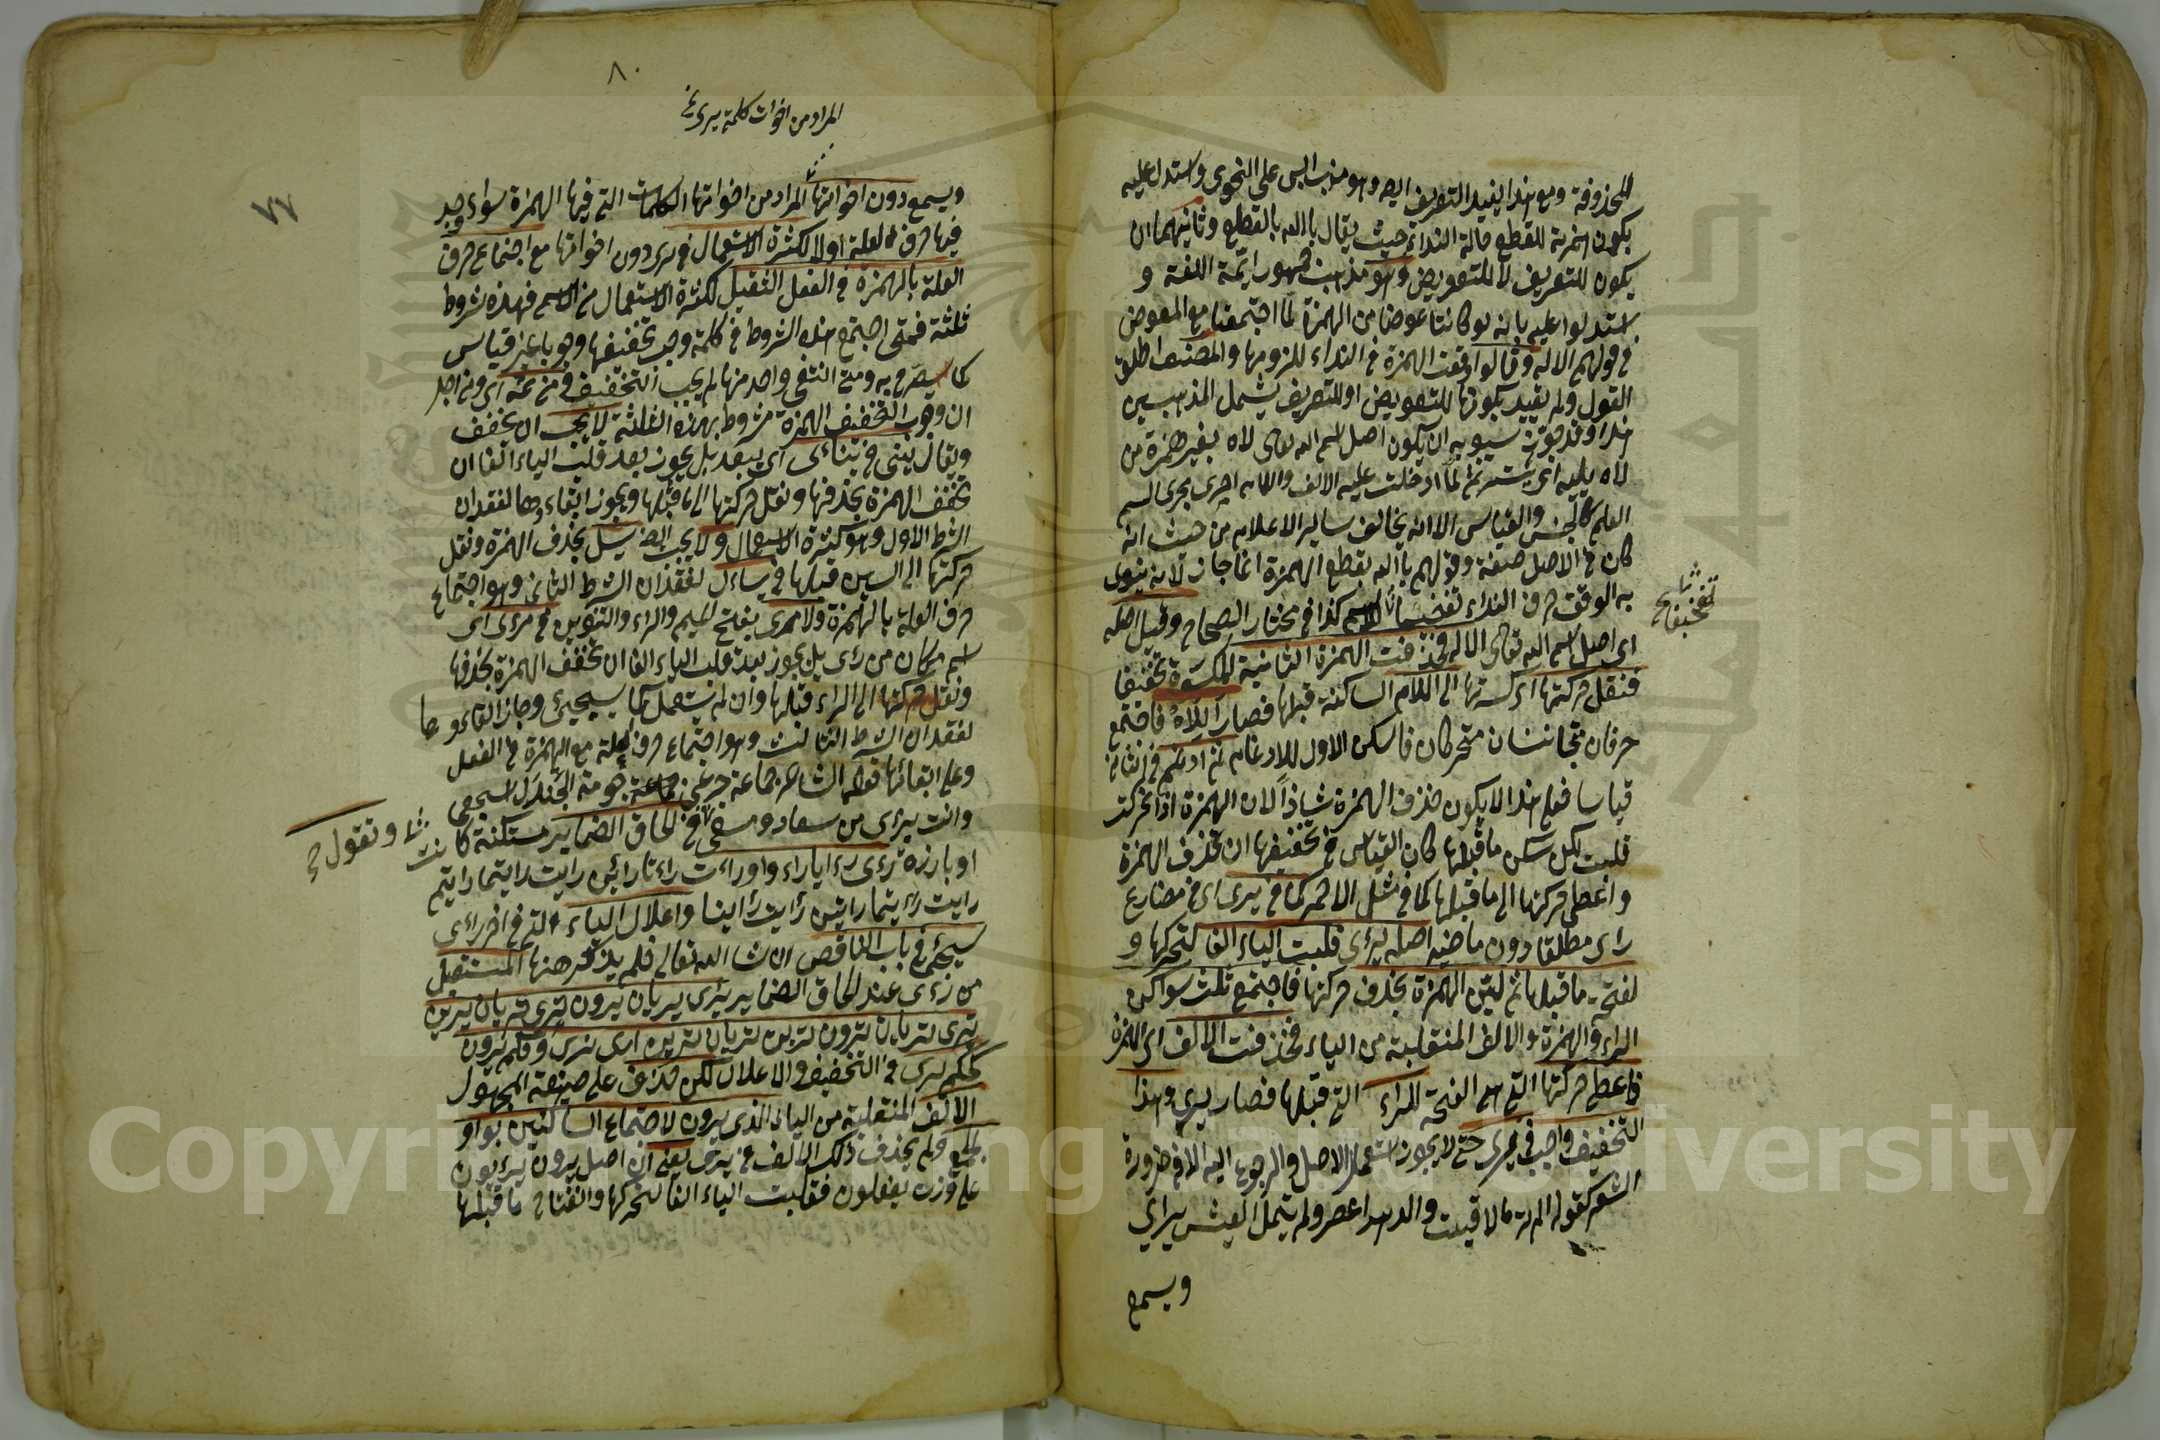 المحذوفة ومع هذا يفيد التعريف ايضا وهو مذهب ابى على النحوى واستدل عليه
بكون همزته للقطع حالة النداء حيث يقال يا الله بالقطع وثانيهما ان
يكون للتعريف لا للتعويض وهو مذهب جمهور ائمة اللغة و
استدلوا عليه بانه لو كانتا عوضا من الهمزة لما اجتمعتا مع المعوض
فى قولهم الاله وقالوا قطعت الهمزة فى النداء للزومها والمصنف اطلق
القول ولم يقيد بكونها للتعويض او للتعريف يشمل المذهبين
هذا وقد جوز سيبويه ان يكون اصل اسم الله تعالى لاه بغير همزة من
لاه يليه اى يستر ثم لما ادخلت عليه الالف واللام اجرى مجرى اسم
العلم كالحسن والقياس الا انه يخالف سائر الاعلام من حيث انه
كان فى الاصل صفة وقولهم يا الله بقطع الهمزة انما جاز لانه ينوى
به الوقف حرف النداء تفخيما للاسم كذا فى مختار الصحاح وقيل اصله
اى اصل اسم الله تعالى الاله فحذفت الهمزة الثانية المكسورة تخفيفا
فنقل حركتها اى كسرتها الى اللام الساكنة قبلها فصار اللاه فاجتمع
حرفان متجانسان متحركان فاسكن الاول للادغام ثم ادغم فى الثانى
قياسا فعلى هذا لا يكون حذف الهمزة شاذا لان الهمزة اذا تحركت
قلبت لكل سكن ما قبلها كان القياس فى تخفيفها ان تحذف الهمزة
واعطى حركتها الى ما قبلها كما فى مثل الاحمر كما فى يرى اى فى مضارع
راى مطلقا دون ماضيه اصله يرأى فقلبت الياء الفا لتحركها و
لفتحة ما قبلها ثم لين الهمزة بحذف حركتها فاجتمع ثلث سواكن
الراء والهمزة والالف المنقلبة من الياء فحذفت الالف اى الهمزة
فاعطى حركتها التى هى الفتحة للراء التى قبلها فصار يرى وهذا
التخفيف واجب فى يرى حتى لا يجوز استعمال الاصل والرجوع اليه الا فى ضرورة
الشعر كقوله الم تر ما لاقيت والدهر اعصر ولم يتمل العيش يراى
ويسمع
تخفيفا صح
٨٠
٧٧
المراد من اخوات كلمة يرى
ويسمع دون اخواتها المراد من اخواتها الكلمات التى فيها الهمزة سواء وجد
فيها حرف العلة او لا لكثرة الاستعمال فى يرى دون اخواتها مع اجتماع حرف
العلة بالهمزة فى الفعل الثقيل لكثرة الاستعمال من الاسم فهذه شروط
ثلثة فمتى اجتمع هذه الشروط فى كلمة وجب تخفيفها وجوبا غير قياس
كما سيصرح به ومتى انتفى واحد منها لم يجب التخفيف ومن ثمه اى ومن اجل
ان وجوب التخفيف الهمزة مشروط بهذه الثلثة لا يجب ان يخفف
ويقال ينى فى ينأى اى يبعد بل يجوز بعد قلب الياء الفا ان
تخفف الهمزة بحذفها ونقل حركتها الى ما قبلها ويجوز ابقاءوها لفقدان
الشرط الاول وهو كثرة الاستعمال ولا يجب ايضا يسل بحذف الهمزة ونقل
حركتها الى السين قبلها فى يسأل لفقدان الشرط الثانى وهو اجتماع
حرف العلة بالهمزة ولا مرى بفتح الميم والراء والتنوين فى مرءى اى
اسم مكان من رأى بل يجوز بعد قلب الياء الفا ان تخفف الهمزة بحذفها
ونقل حركتها الى الراء قبلها وان لم يستعمل كما سيجيئ وجاز القاءوها
لفقدان الشرط الثالث وهو اجتماع حرف العلة مع الهمزة فى الفعل
وعلى ابقائها قول الشاعر جماعة جرعى حومة الجندل اسجعى
وانت بمرأى من سعاد ومسمع فى لحاق الضمائر مستكنة كانت
وتقول صح
او بارزة رءى رءايا راءوا وراءت راءتا رأين رايت رايتما رايتم
رايت رايتما رايتن رأيت رأينا واعلال الياء التى فى اخر راءى
سيجئ فى باب الناقص ان شا الله تعالى فلم يذكر ههنا المستقبل
من رءى عند لحاق الضمائر يرى يريان يرون ترى تريان يرين
ترى تريان ترون ترين تريان ترين ارى نرى وحكم يرون
كحكم يرى فى التخفيف والاعلال لكن حذف على صيغة المجهول
الالف المنقلبة من الياء الذى يرون لاجتماع الساكنين بواو
الجمع ولم يحذف ذلك الالف فى يرى يعنى ان اصل يرون يرءيون
على وزن يفعلون فقلبت الياء الفا لتحركها وانفتاح ما قبلها